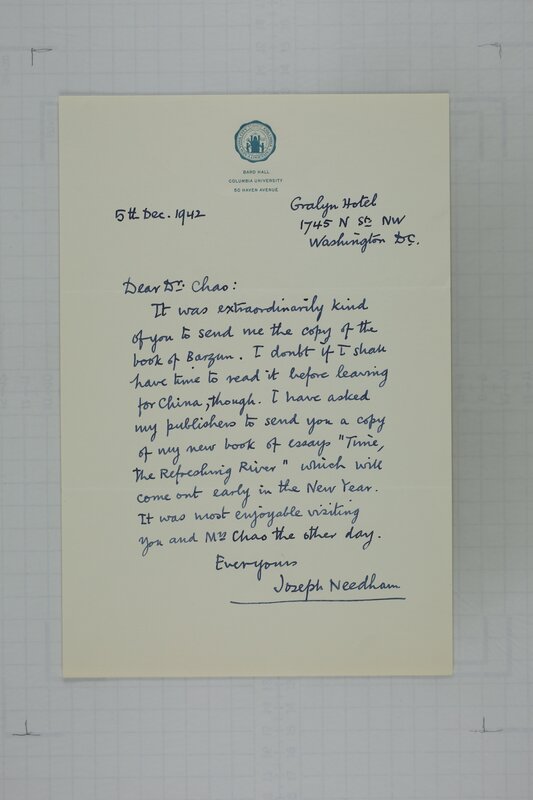 BARD HALL
COLUMBIA UNIVERSITY
50 HAVEN AVENUE
5th Dec. 1942
Gralyn Hotel
1745 N St. NW
Washington D.C.
Dear Dr. Chao:
It was extraordinarily kind
of you to send me the copy of the
book of Barzun. I doubt if I shall
have time to read it before leaving
for China, though. I have asked
my publishers to send you a copy
of my new book of essays "Time,
the Refreshing River" which will
come out early in the New Year.
It was most enjoyable visiting
you and Mrs Chao the other day.
Ever yours
Joseph Needham